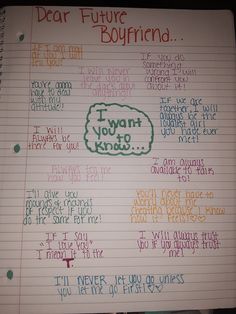 Dear Future
Boyfriend...
If I am mad
at you I will
tell you!
If you do
something
wrong I will
confront you
about it!
I will Never
leave you in
the dark about
anything!
You're gonna
have to deal
with my
attitude!
If we are
together I will
always be the
happiest girl
you have ever
met!
I will
Always be
there for you!
I want
you to
know...
Always tell me
how you feel!
I am always
available to talk
to!
I'll give you
rounds & rounds
of respect if you
do the same for me!
You'll never have to
worry about me
cheating because I know
how it feels!
If I say
"I love you"
I mean it to the
T.
I will always trust
you if you always trust
me!
I'll NEVER let you go unless
you let me go First!